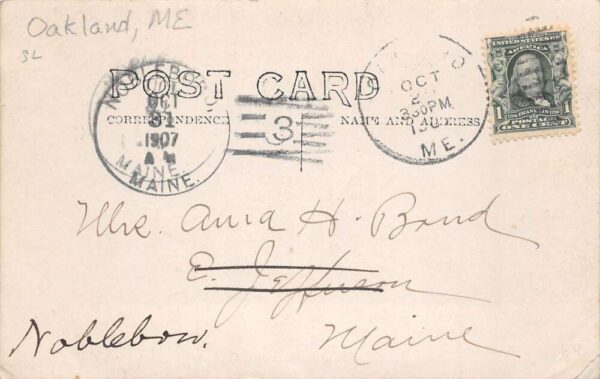 Oakland, ME
SL
POST CARD
CORRESPONDENCE
NAME AND ADDRESS
NOBLEBORO
OCT
1907
MAINE.
MAINE.
3
OCT
330PM
190
ME.
UNITED STATES OF AMERICA
1 1
POSTAGE
ONE CENT
Mrs. Anna H. Bond
E. Jefferson
Nobleboro.
Maine